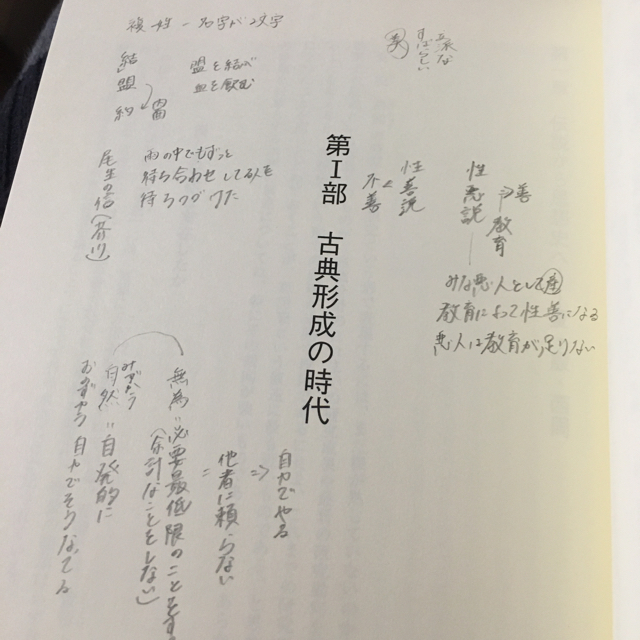 複姓－名字が2文字
結盟
約
盟を結ぶ
血を飲む
美
立派な
すばらしい
尾生の信(芥川)
雨の中でもずっと
待ち合わせしてる人を
待ちつづけた
第Ⅰ部　古典形成の時代
性善説
不善
性悪説
善
教育
みな悪人として産
教育によって性善になる
悪人は教育が足りない
自力でやる
⇒
他者に頼らない
＝
無為＝必要最低限のことをする
(余計なことをしない)
みずから
自然＝自発的に
おのずから　自力でそうなってる